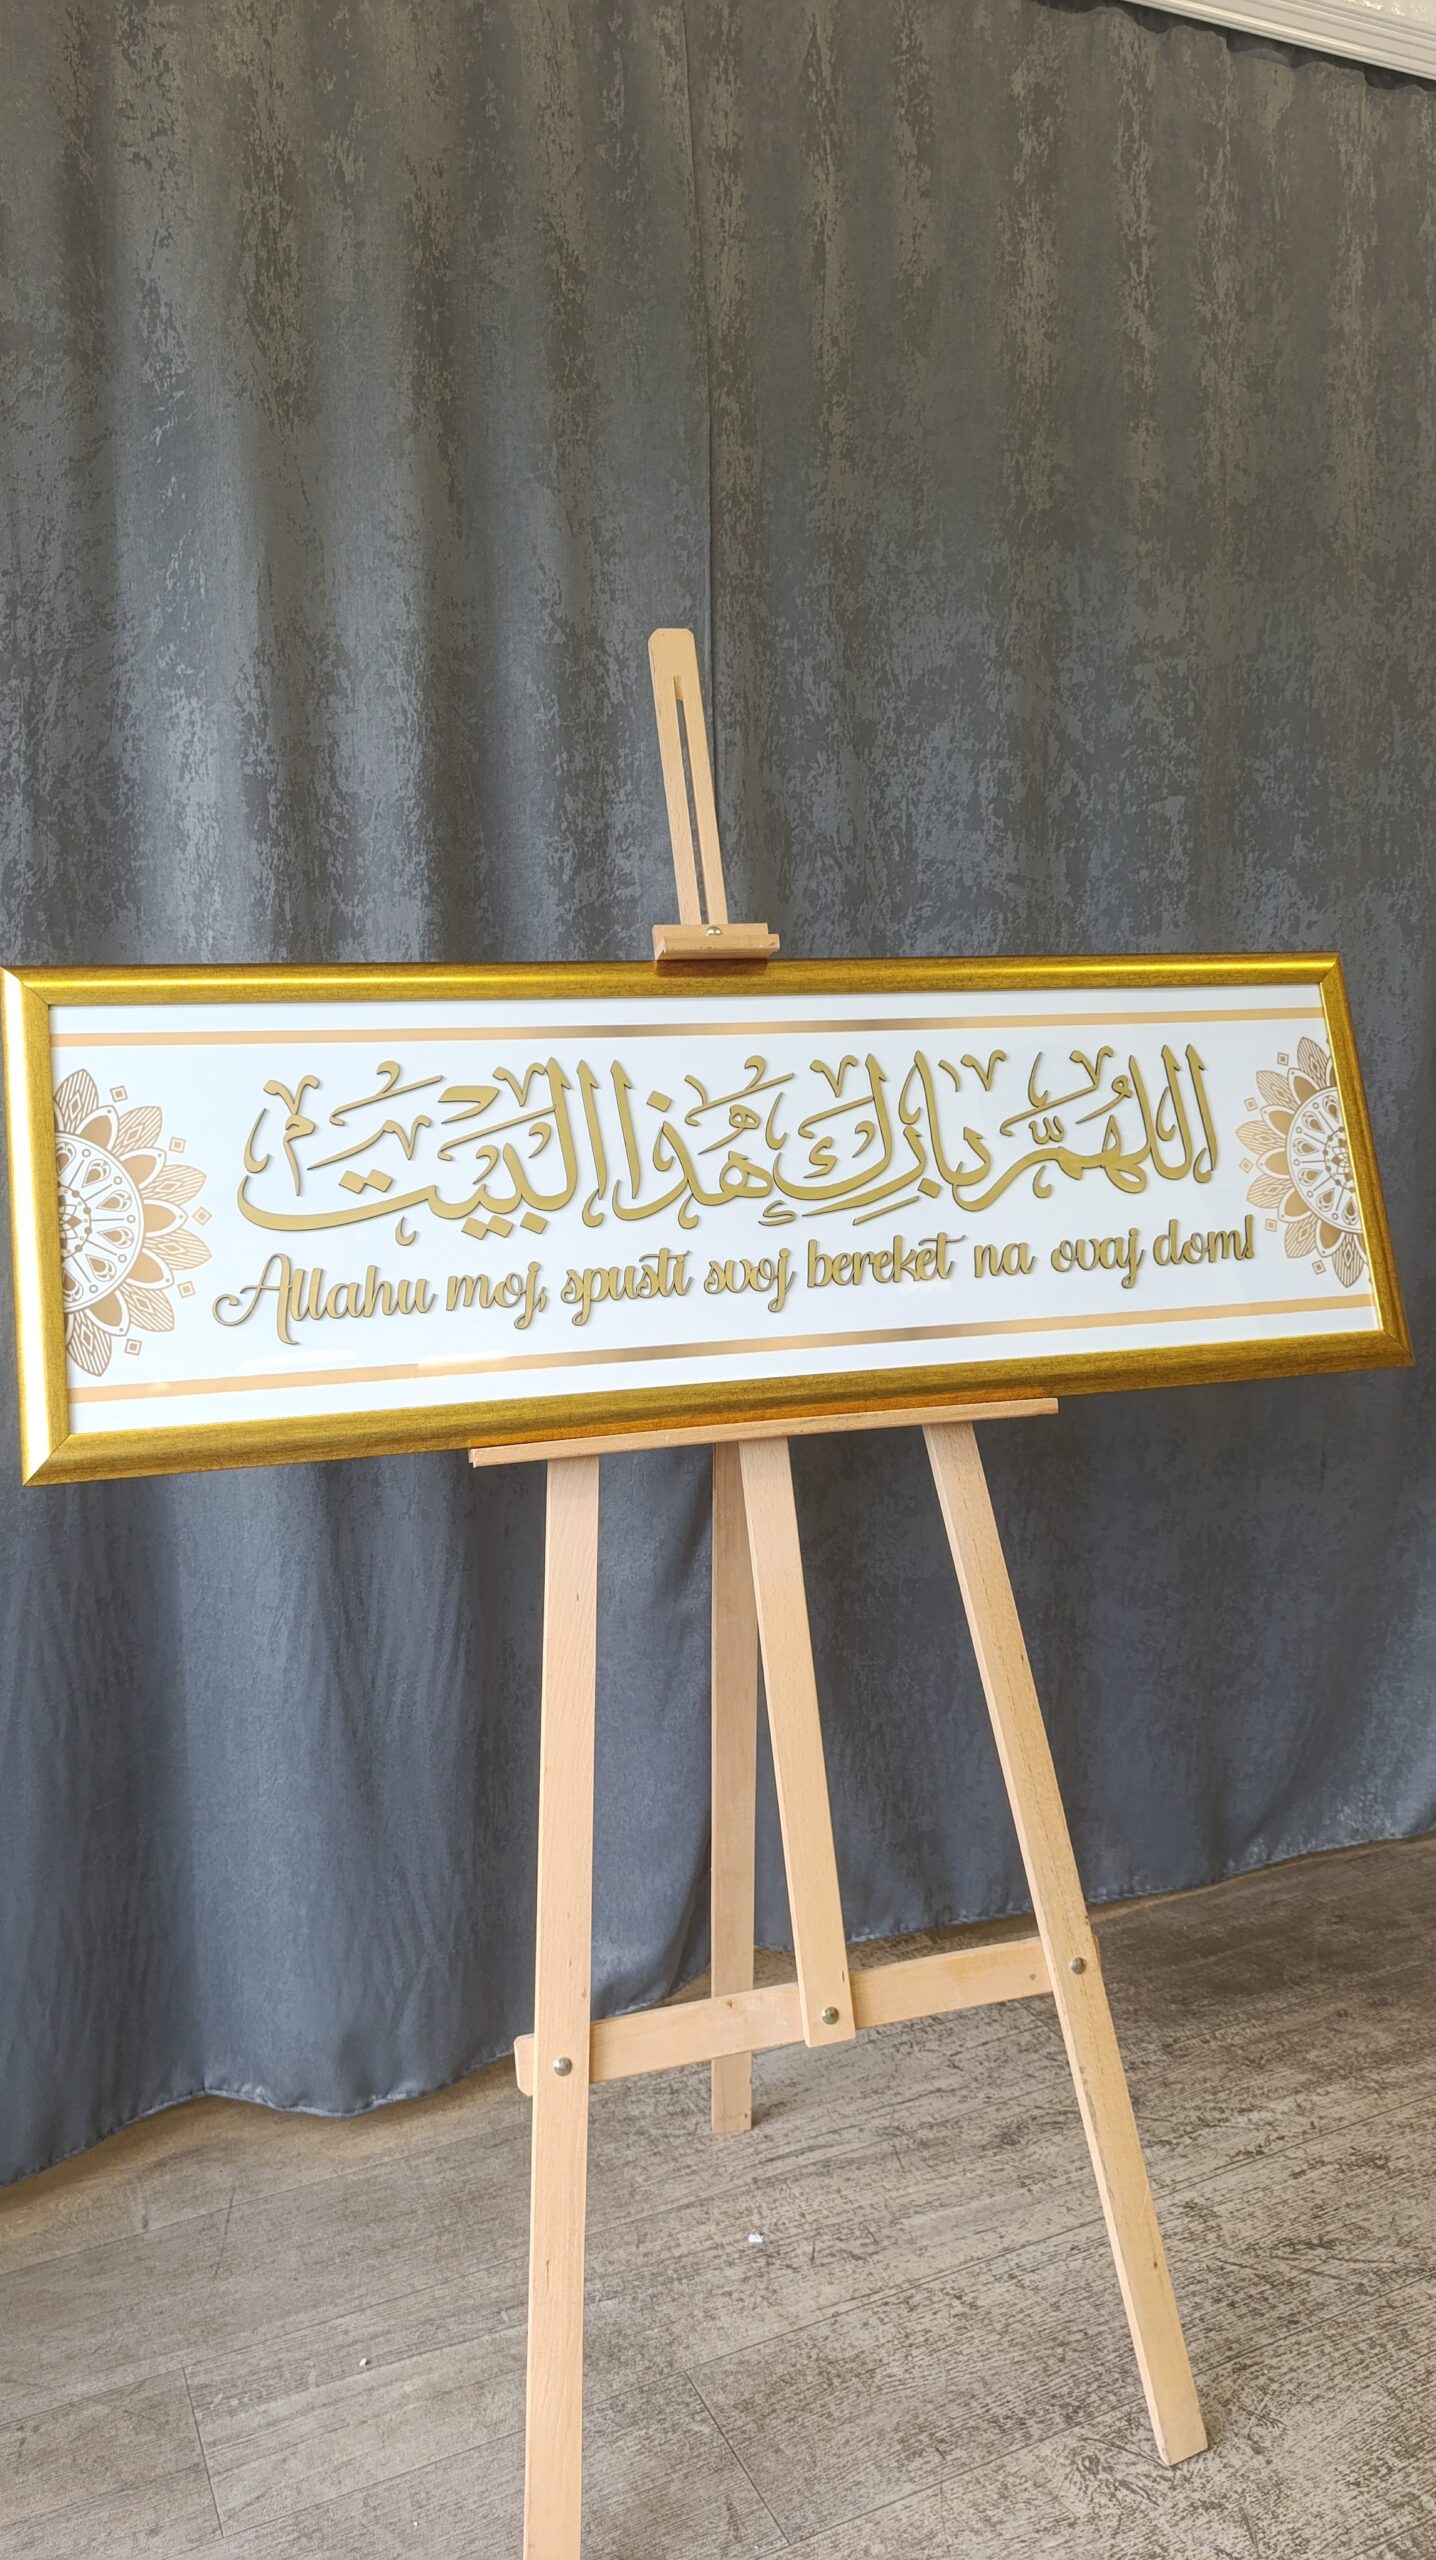 اللهُمَّ بارِك هٰذا البَيْت
Allahu moj, spusti svoj bereket na ovaj dom!